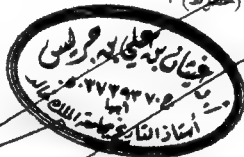 غيثان بن علي بن جريس
٠٣٧٧٩٣٧٠
أبها
أستاذ التاريخ بجامعة الملك خالد